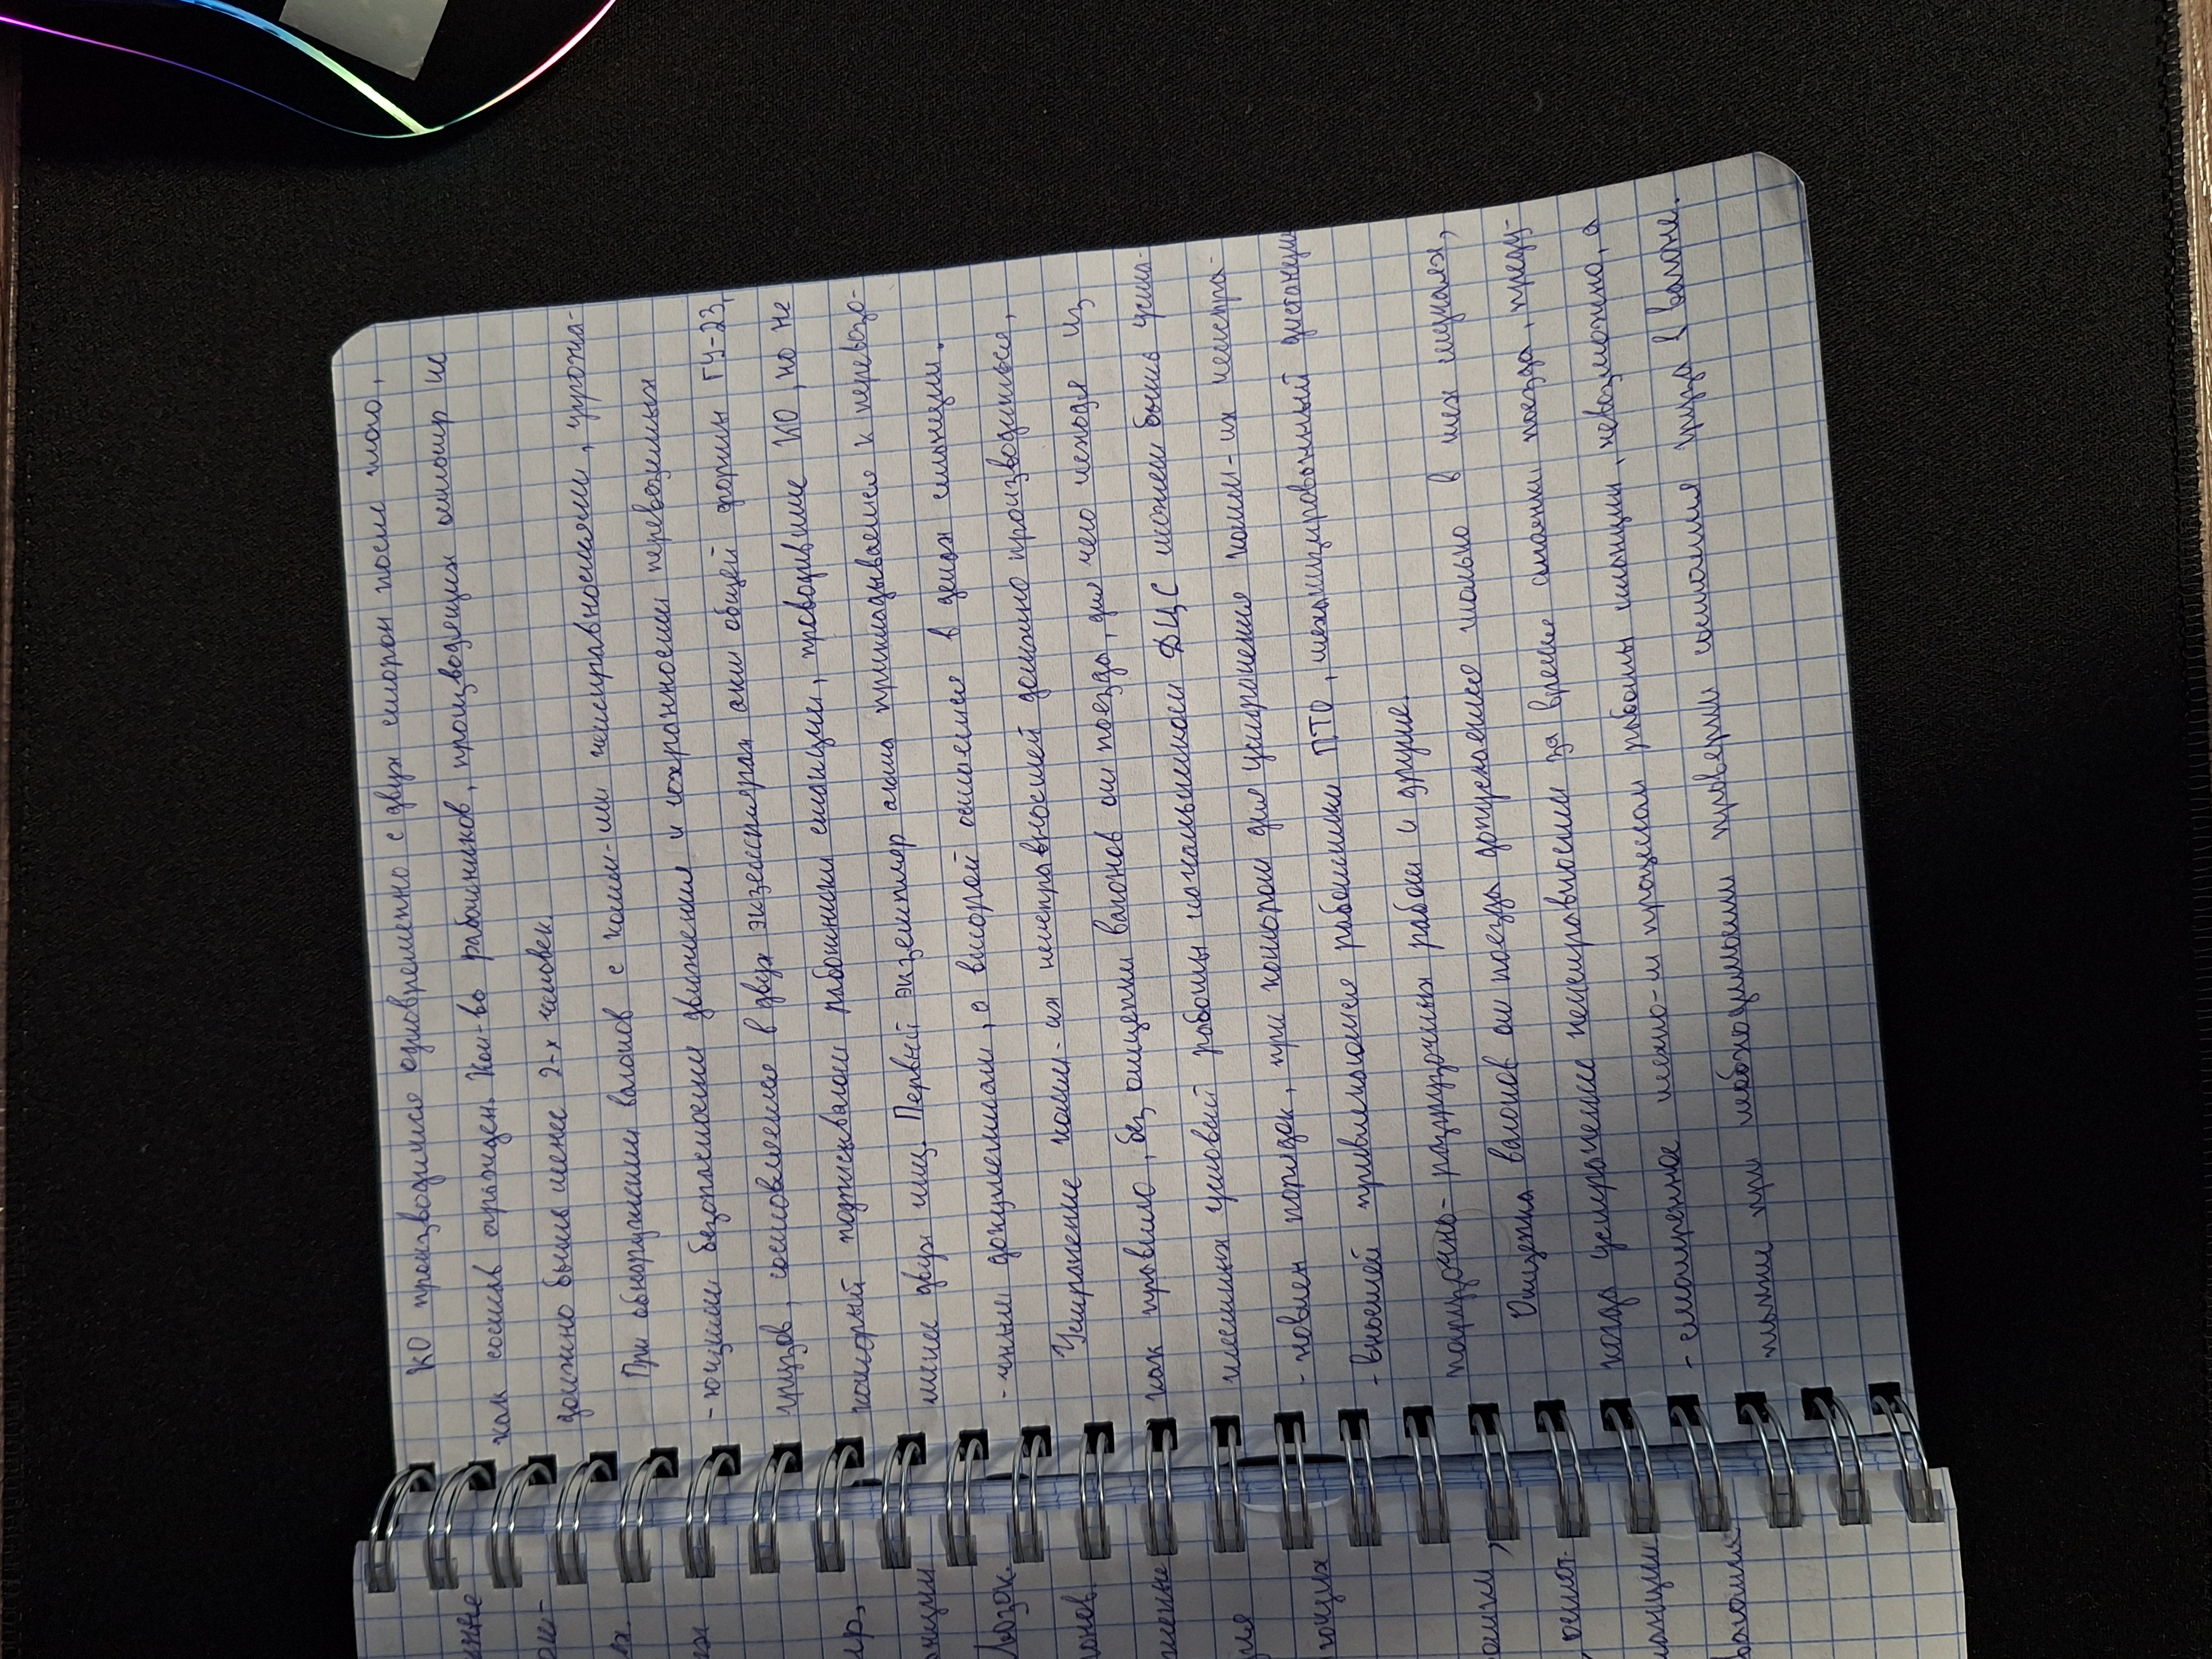 КО производится одновременно с двух сторон после того,
как состав ограждён. Кол-во работников, производящих осмотр не
должно быть менее 2-х человек.
При обнаружении вагонов с комм-ми неисправностями, угрожа-
-ющими безопасности движения и сохранности перевозимых
грузов, составляется в двух экземплярах акт общей формы ГУ-23,
который подписывают работники станции, проводившие КО, но не
менее двух лиц. Первый экземпляр акта прикладывается к перевозо-
-чным документам, а второй остается в делах станции.
Устранение комм-их неисправностей должно производиться,
как правило, без отцепки вагонов от поезда, для чего исходя из
местных условий работы начальником ДЦС может быть уста-
-новлен порядок, при котором для устранения комм-их неиспра-
-вностей привлекаются работники ПТО, механизированной дистанции
погрузочно-разгрузочных работ и другие.
Отцепка вагонов от поезда допускается только в тех случаях,
когда устранение неисправности за время стоянки поезда, преду-
-смотренное техно-м процессом работы станции, невозможно, а
также при необходимости проверки состояния груза в вагоне.
ощих